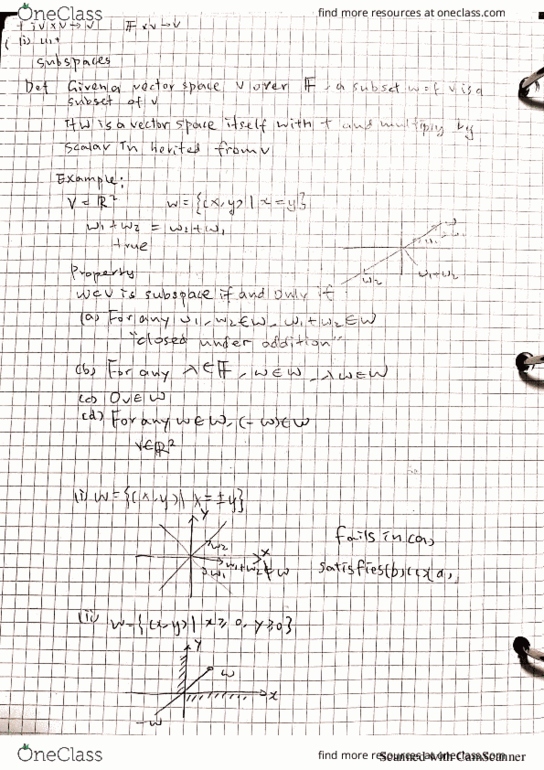 OneClass
find more resources at oneclass.com
+ : V x V → V    F x V → V
subspaces
Def Given a vector space V over F, a subset W of V is a
subset of V
If W is a vector space itself with + and multiply by
scalar in herited from V
Example:
V = R²    W = {(x,y) | x = y}
w₁ + w₂ = w₂ + w₁
true
w₂
w₁+w₂
Property
W⊂V is subspace if and only if
(a) For any w₁, w₂ ∈ W, w₁+w₂ ∈ W
"closed under addition"
(b) For any λ ∈ F, w ∈ W, λw ∈ W
(c) 0v ∈ W
(d) For any w ∈ W, (-w) ∈ W
V ∈ R²
(i) W = {(x,y) | x = ±y}
y
w₂
x
w₁
w₁+w₂ ∉ W
fails in (a),
satisfies (b)(c)(d)
(ii) W = {(x,y) | x ≥ 0, y ≥ 0}
y
w
x
-w
OneClass
find more resources at oneclass.com
Scanned with CamScanner